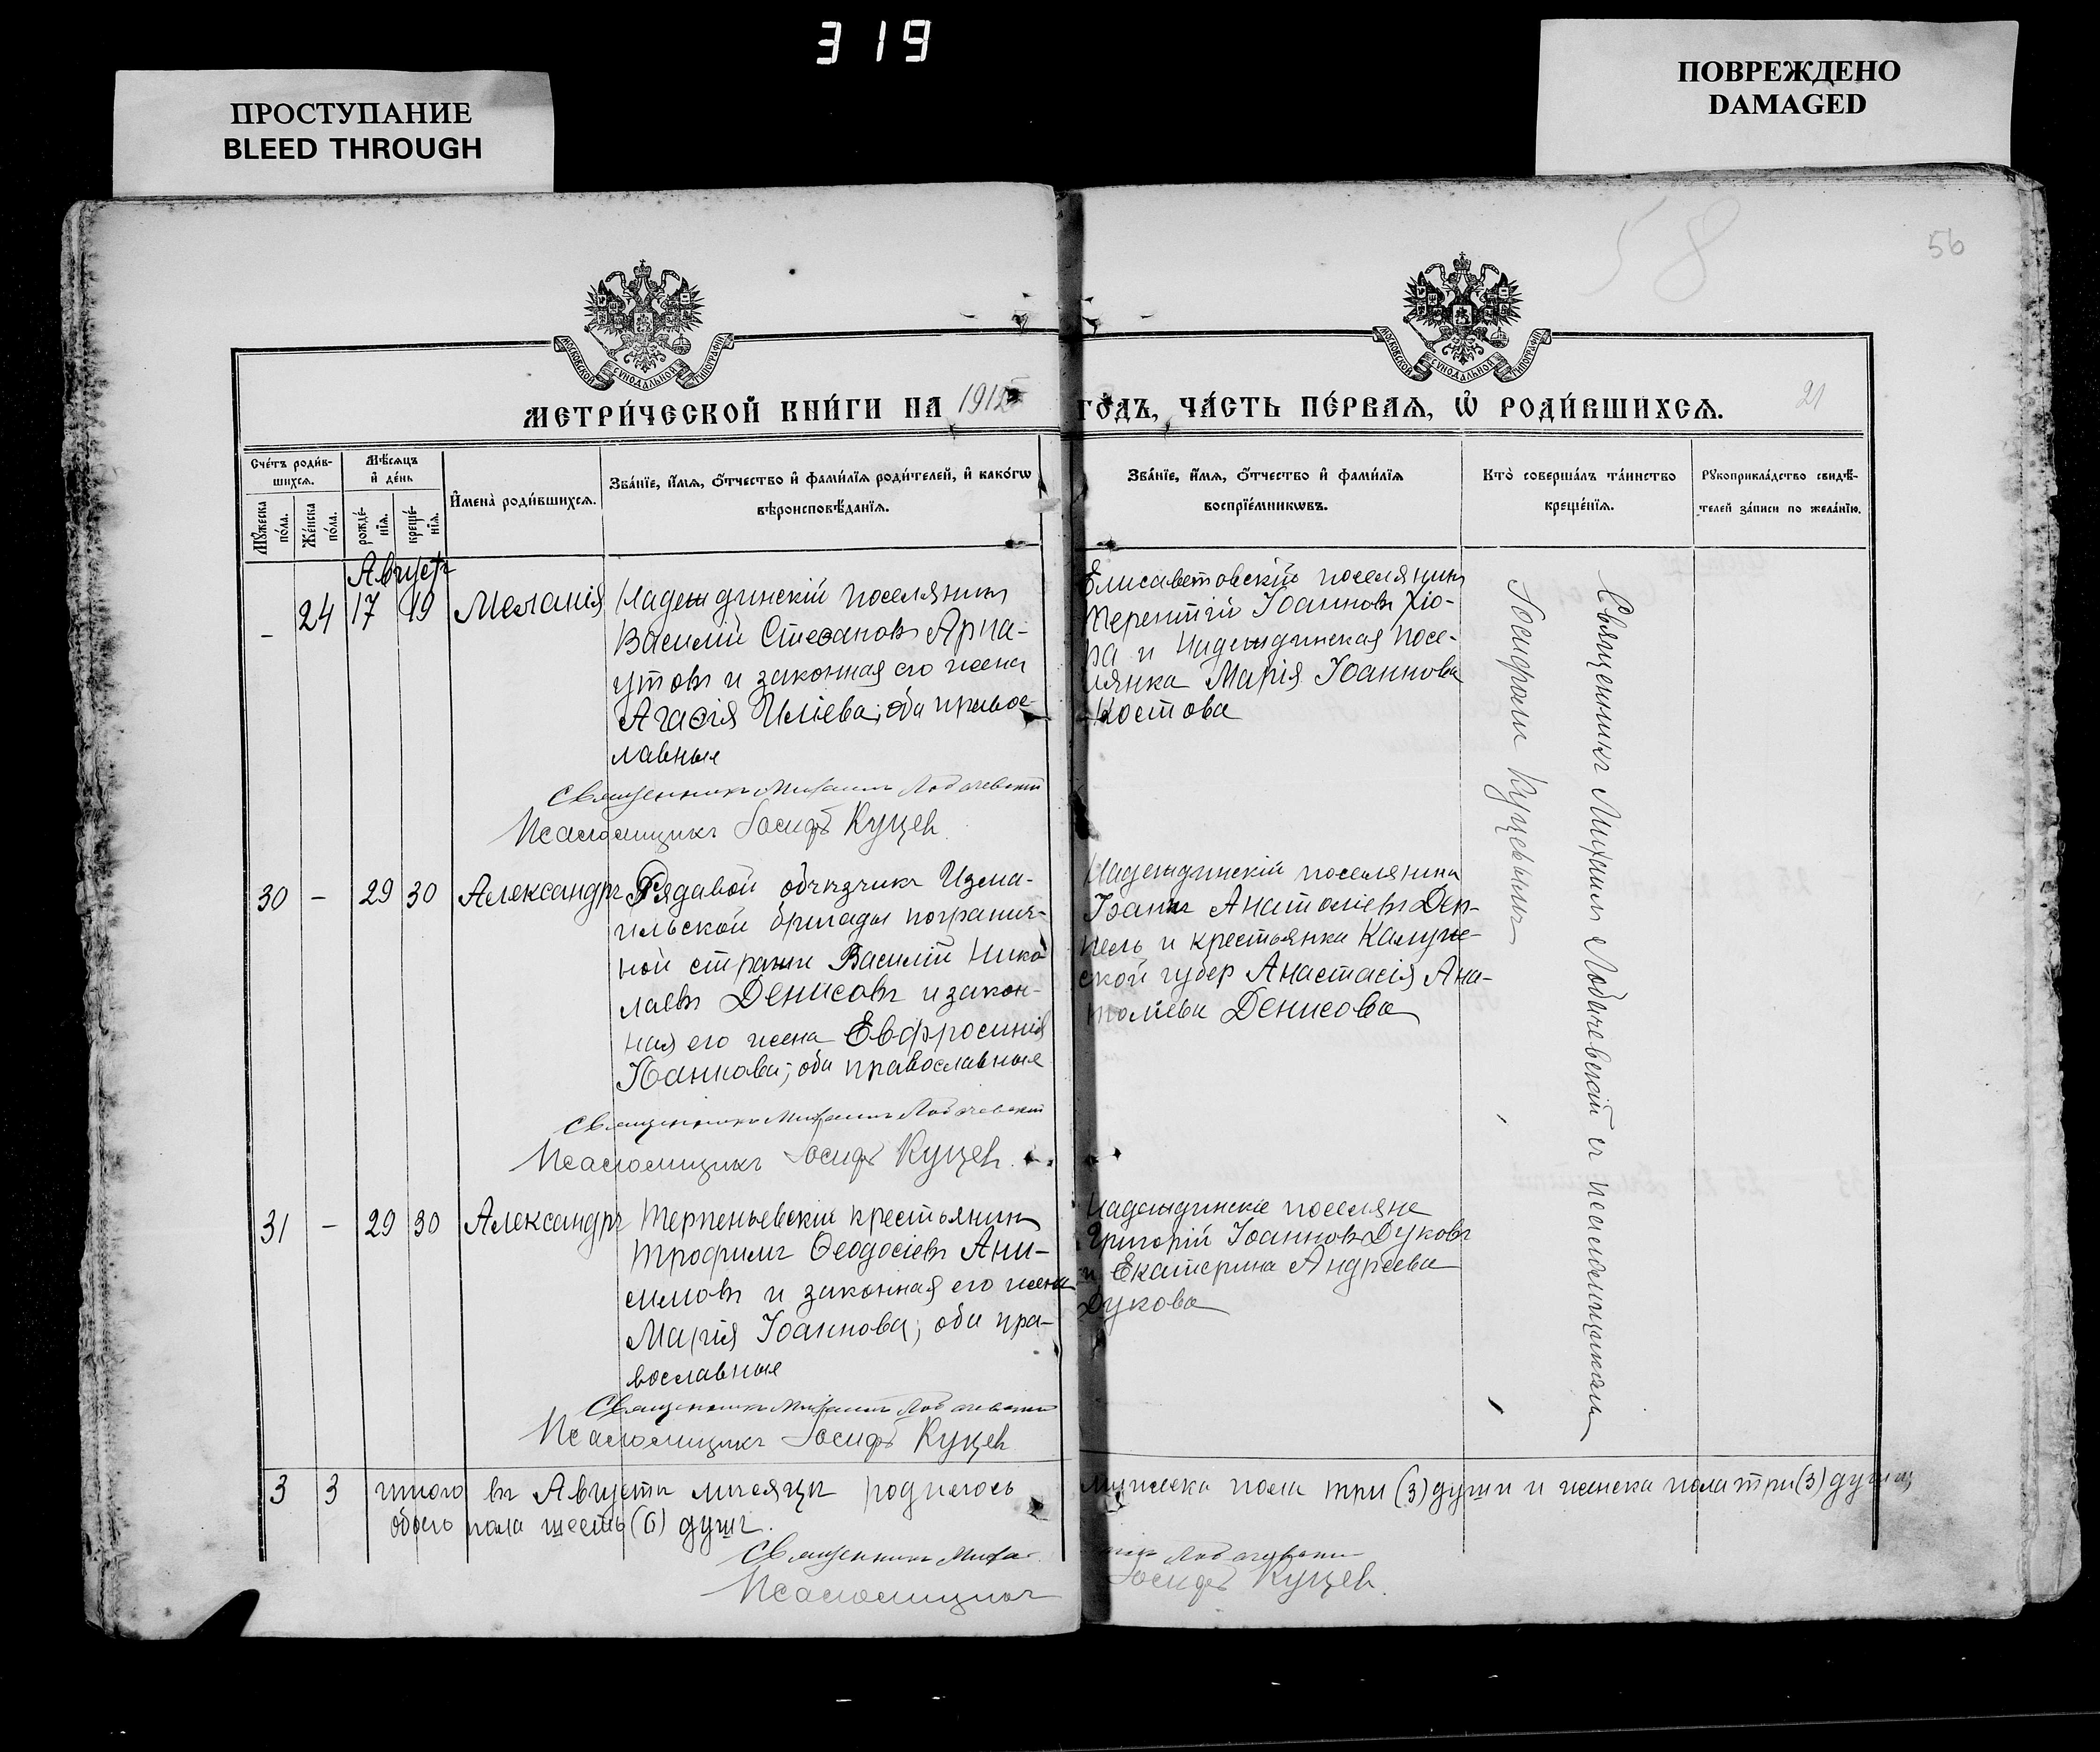 319
ПРОСТУПАНИЕ
BLEED THROUGH
ПОВРЕЖДЕНО
DAMAGED
58
56
МОСКОВСКОЙ СѴНОДАЛЬНОЙ ТИПОГРАФІИ
МОСКОВСКОЙ СѴНОДАЛЬНОЙ ТИПОГРАФІИ
МЕТРИ́ЧЕСКОЙ КНИ́ГИ НА 1912 ГО́ДЪ, ЧА́СТЬ ПЕ́РВАѦ, Ѽ РОДИ́ВШИХСѦ.
21
Сче́тъ роди́в-
шихсѧ.
Мꙋ́жеска
по́ла.
Же́нска
по́ла.
Мѣ́сѧцъ
и҆ де́нь
рожде́-
нїѧ.
креще́-
нїѧ.
И҆мена̀ роди́вшихсѧ.
Зва́нїе, и҆́мѧ, ѻ҆́тчество и҆ фами́лїѧ роди́телей, и҆ како́гѡ
вѣроисповѣ́данїѧ.
Зва́нїе, и҆́мѧ, ѻ҆́тчество и҆ фами́лїѧ
воспрїе́мникѡвъ.
Кто̀ соверша́лъ та́инство
креще́нїѧ.
Рꙋкоприкла́дство свидѣ́-
телей за́писи по жела́нїю.
Августъ
- 24 17 19 Меланія
Надеждинскій поселянинъ
Василій Стефановъ Арна-
утовъ и законная его жена
Агафія Илієва; оба правос-
лавные
Священникъ Михаилъ Лобачевскій
Псаломщикъ Іосифъ Куцев
Елисаветовскій поселянинъ
Терентій Іоанновъ Хіо-
ра и Надеждинская посе-
лянка Марія Іоаннова
Костова
Священникъ Михаилъ Лобачевскій съ псаломщикомъ
Іосифомъ Куцевымъ
30 - 29 30 Александръ
Рядавой обчызчикъ Изма-
ильской бригады погранич-
ной стражи Василій Нико-
лаевъ Денисовъ и закон-
ная его жена Евфросинія
Іоаннова; оба православные
Священникъ Михаилъ Лобачевскій
Псаломщикъ Іосифъ Куцев.
Надеждинскій поселянинъ
Іоаннъ Анатоліевъ Ден-
и крестьянка Калуж-
ской губер Анастасія Ана-
толіева Денисова
31 - 29 30 Александръ
Терпеньевскій крестьянинъ
Трофимъ Ѳеодосіевъ Ани-
симовъ и законная его жена
Марія Іоаннова; оба пра-
вославные
Священникъ Михаилъ Лобачевскій
Псаломщикъ Іосифъ Куцев
Надеждинскіе поселяне
Григорій Іоанновъ Дуковъ
и Екатерина Андреева
Дукова
3 3 итого въ Августѣ мѣсяцѣ родилось мужеска пола три (3) души и женска пола три (3) души,
обоего пола шесть (6) душъ.
Священникъ Михаилъ Лобачевскій
Псаломщикъ Іосифъ Куцев.